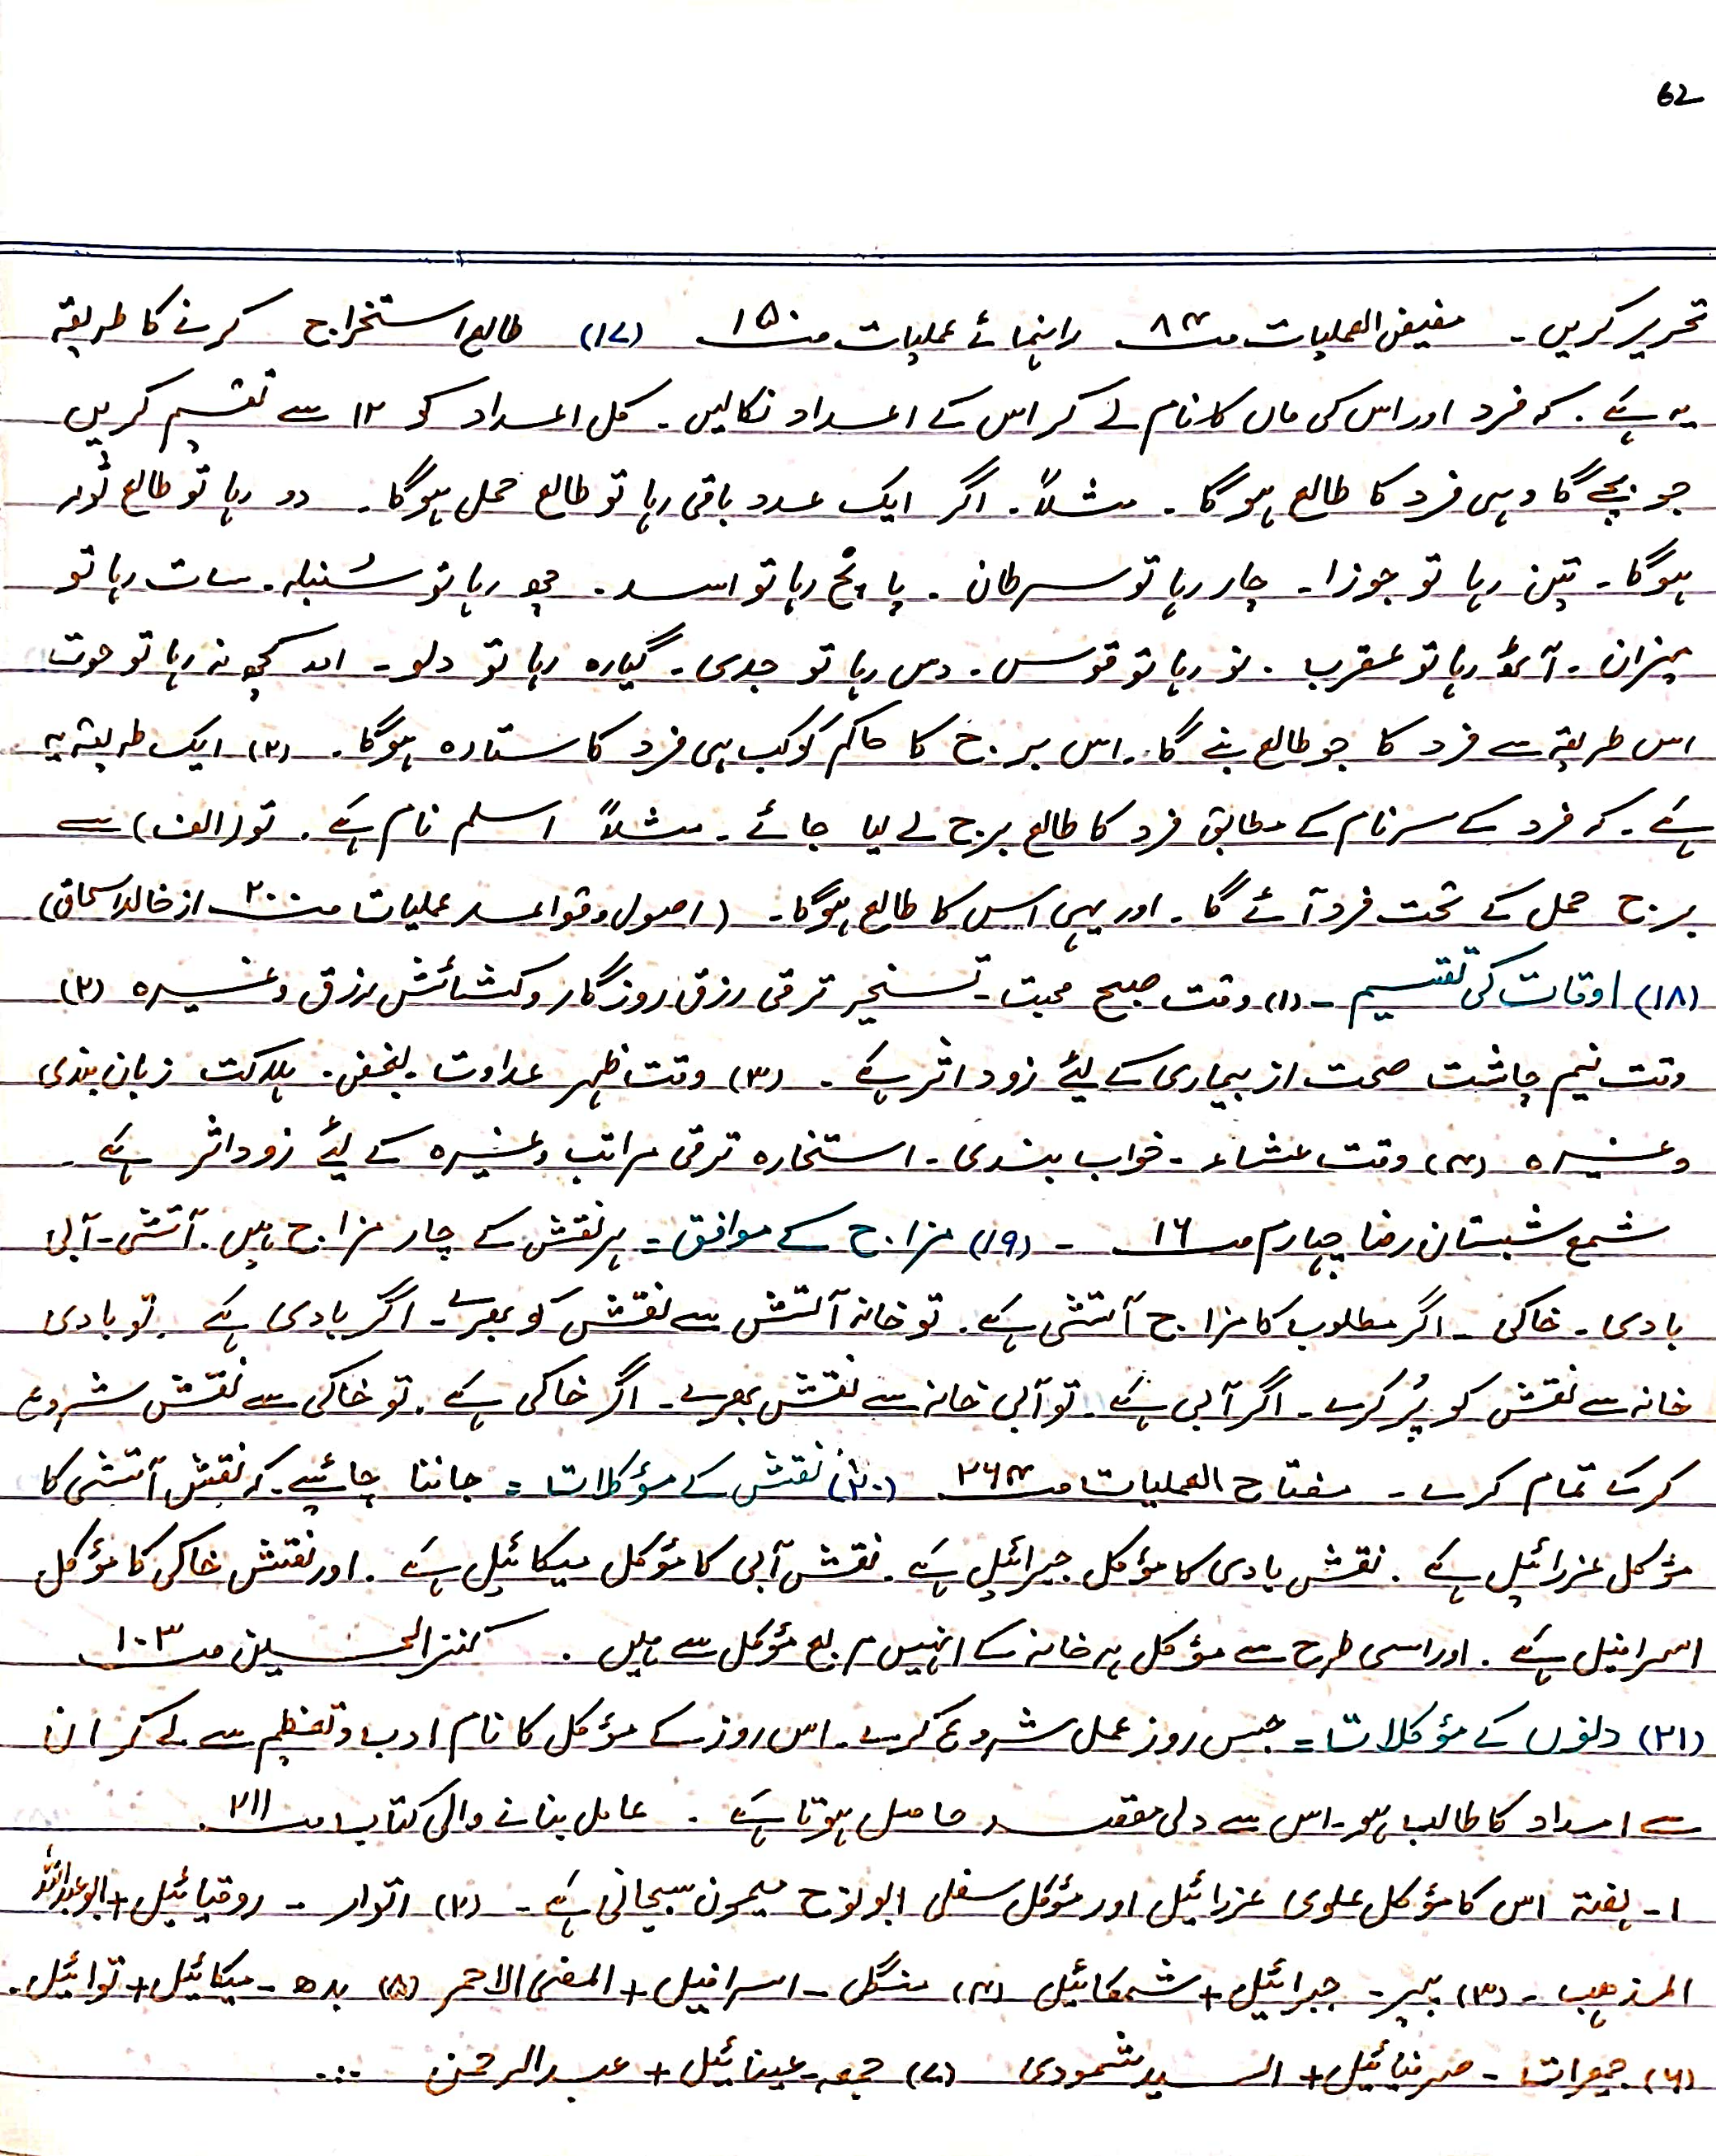 62
تحریر کریں ۔ مفیض العملیات صـ ۸۴ راہنمائے عملیات صـ ۱۵۰ (۱۷) طالع استخراج کرنے کا طریقہ
یہ ہے ۔ کہ فرد اور اس کی ماں کا نام لے کر اس کے اعداد نکالیں ۔ کل اعداد کو ۱۲ سے تقسیم کریں
جو بچے گا وہی فرد کا طالع ہوگا ۔ مثلاً ۔ اگر ایک عدد باقی رہا تو طالع حمل ہوگا ۔ دو رہا تو طالع ثور
ہوگا ۔ تین رہا تو جوزا ۔ چار رہا تو سرطان ۔ پانچ رہا تو اسد ۔ چھ رہا تو سُنبلہ ۔ سات رہا تو
میزان ۔ آٹھ رہا تو عقرب ۔ نو رہا تو قوس ۔ دس رہا تو جدی ۔ گیارہ رہا تو دلو ۔ اور کچھ نہ رہا تو حوت
اس طریقہ سے فرد کا جو طالع بنے گا ۔ اس برج کا حاکم کوکب ہی فرد کا ستارہ ہوگا ۔ (۲) ایک طریقہ یہ
ہے ۔ کہ فرد کے سرنام کے مطابق فرد کا طالع برج لے لیا جائے ۔ مثلاً اسلم نام ہے ۔ تو (الف) سے
برج حمل کے تحت فرد آئے گا ۔ اور یہی اس کا طالع ہوگا ۔ (اصول و قواعد عملیات صـ ۲۰ از خالد اسحاق)
(۱۸) اوقات کی تقسیم ۔ (۱) وقت صبح محبت ۔ تسخیر ترقی رزق روزگار و کشائش رزق وغیرہ (۲)
وقت نیم چاشت صحت از بیماری کے لیئے زود اثر ہے ۔ (۳) وقت ظہر عداوت ۔ بغض ۔ ہلاکت زبان بندی
وغیرہ (۴) وقت عشاء ۔ خواب بندی ۔ استخارہ ترقی مراتب وغیرہ کے لیئے زود اثر ہے ۔
شمع شبستان رضا چہارم صـ ۱۶ ۔ (۱۹) مزاج کے موافق = ہر نقش کے چار مزاج ہیں ۔ آتشی ۔ آبی
بادی ۔ خاکی ۔ اگر مطلوب کا مزاج آتشی ہے ۔ تو خانہ آتش سے نقش کو بھرے ۔ اگر بادی ہے ۔ تو بادی
خانہ سے نقش کو پُر کرے ۔ اگر آبی ہے ۔ تو آبی خانہ سے نقش بھرے ۔ اگر خاکی ہے ۔ تو خاکی سے نقش شروع
کر کے تمام کرے ۔ مفتاح العملیات صـ ۲۶۴ (۲۰) نقش کے مؤکلات = جاننا چاہئیے ۔ کہ نقش آتشی کا
مؤکل عزرائیل ہے ۔ نقش بادی کا مؤکل جبرائیل ہے ۔ نقش آبی کا مؤکل میکائیل ہے ۔ اور نقش خاکی کا مؤکل
اسرافیل ہے ۔ اور اسی طرح سے مؤکل ہر خانہ کے انہیں مربع مؤکل سے ہیں ۔ کنز الحسین صـ ۱۰۳
(۲۱) دنوں کے مؤکلات = جس روز عمل شروع کرے ۔ اس روز کے مؤکل کا نام ادب و تعظیم سے لے کر ان
سے امداد کا طالب ہو ۔ اس سے دلی مقصد حاصل ہوتا ہے ۔ عامل بنانے والی کتاب صـ ۲۱۱
۱۔ ہفتہ اس کا مؤکل علوی عزرائیل اور مؤکل سفلی ابو نوح میمون سبحانی ہے ۔ (۲) اتوار ۔ روقیائیل + ابو عبداللہ
المذھب ۔ (۳) پیر ۔ جبرائیل + شمکائیل (۴) منگل ۔ اسرافیل + المغری الاحمر (۵) بدھ ۔ میکائیل + توائیل ۔
(۶) جمعرات ۔ صرفیائیل + السید شمودی (۷) جمعہ ۔ عینائیل + عبد الرحمن